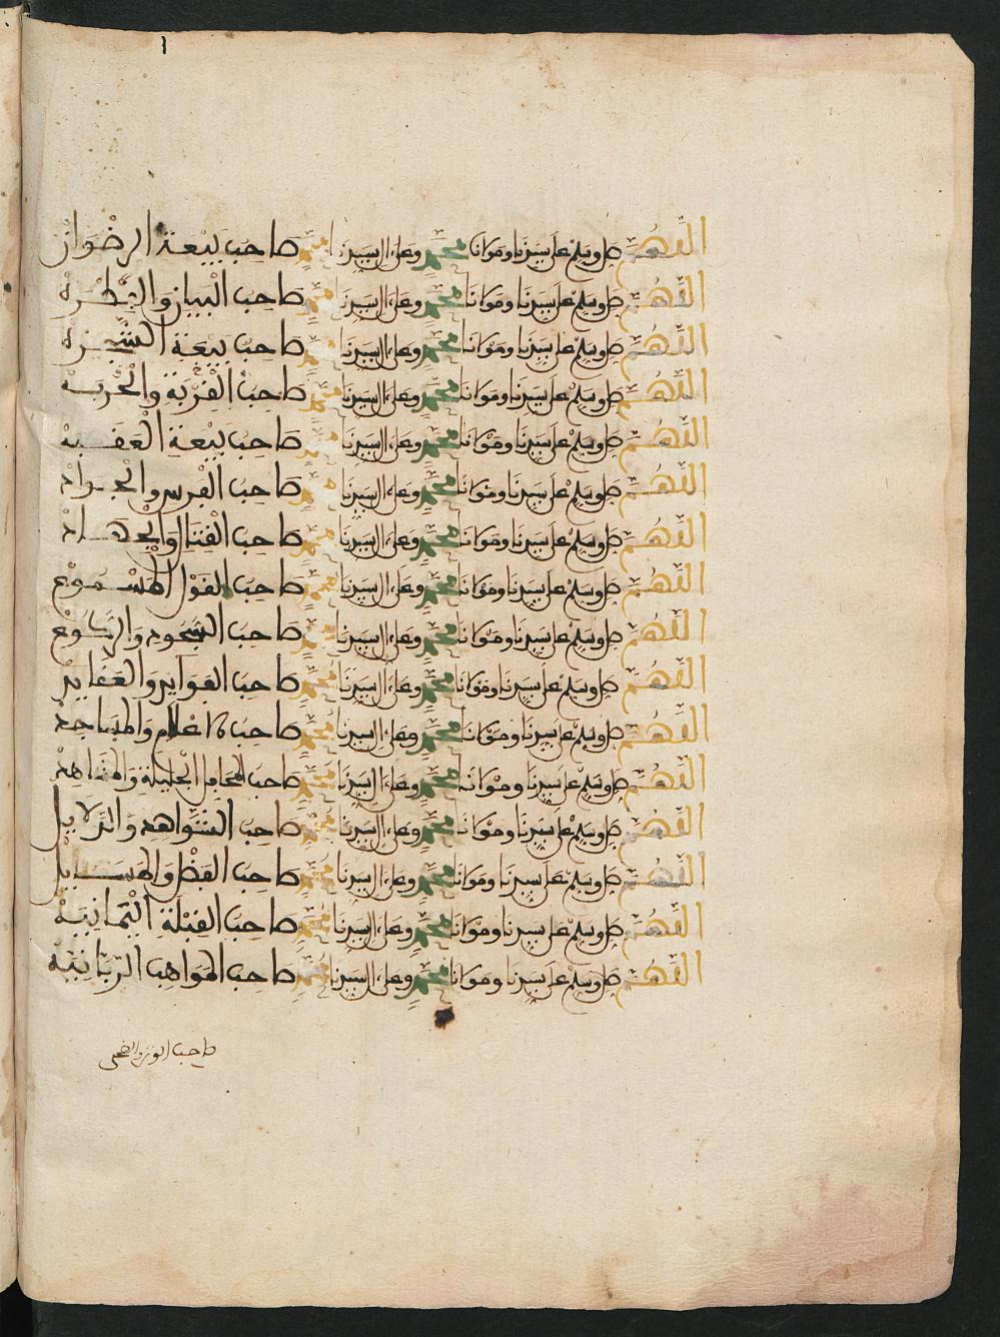 اللهم صل وسلم على سيدنا ومولانا محمد وعلى ءال سيدنا محمد صاحب بيعة الرضوان
اللهم صل وسلم على سيدنا ومولانا محمد وعلى ءال سيدنا محمد صاحب البيان
اللهم صل وسلم على سيدنا ومولانا محمد وعلى ءال سيدنا محمد صاحب بيعة الشجرة
اللهم صل وسلم على سيدنا ومولانا محمد وعلى ءال سيدنا محمد صاحب
اللهم صل وسلم على سيدنا ومولانا محمد وعلى ءال سيدنا محمد صاحب بيعة العقبة
اللهم صل وسلم على سيدنا ومولانا محمد وعلى ءال سيدنا محمد صاحب الفرس والجواد
اللهم صل وسلم على سيدنا ومولانا محمد وعلى ءال سيدنا محمد صاحب القتال والجهاد
اللهم صل وسلم على سيدنا ومولانا محمد وعلى ءال سيدنا محمد صاحب القول المسموع
اللهم صل وسلم على سيدنا ومولانا محمد وعلى ءال سيدنا محمد صاحب السجود والركوع
اللهم صل وسلم على سيدنا ومولانا محمد وعلى ءال سيدنا محمد صاحب الفوايد والعقايد
اللهم صل وسلم على سيدنا ومولانا محمد وعلى ءال سيدنا محمد صاحب الاعلام والمساجد
اللهم صل وسلم على سيدنا ومولانا محمد وعلى ءال سيدنا محمد صاحب المحافل الجليلة والمشاهد
اللهم صل وسلم على سيدنا ومولانا محمد وعلى ءال سيدنا محمد صاحب الشواهد والدلايل
اللهم صل وسلم على سيدنا ومولانا محمد وعلى ءال سيدنا محمد صاحب الفضل والمسايل
اللهم صل وسلم على سيدنا ومولانا محمد وعلى ءال سيدنا محمد صاحب القبلة اليمانية
اللهم صل وسلم على سيدنا ومولانا محمد وعلى ءال سيدنا محمد صاحب المواهب الربانية
صاحب